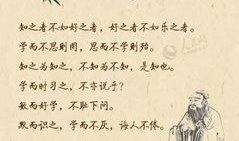 知之者不如好之者，好之者不如乐之者。
学而不思则罔，思而不学则殆。
知之为知之，不知为不知，是知也。
学而时习之，不亦说乎？
敏而好学，不耻下问。
默而识之，学而不厌，诲人不倦。